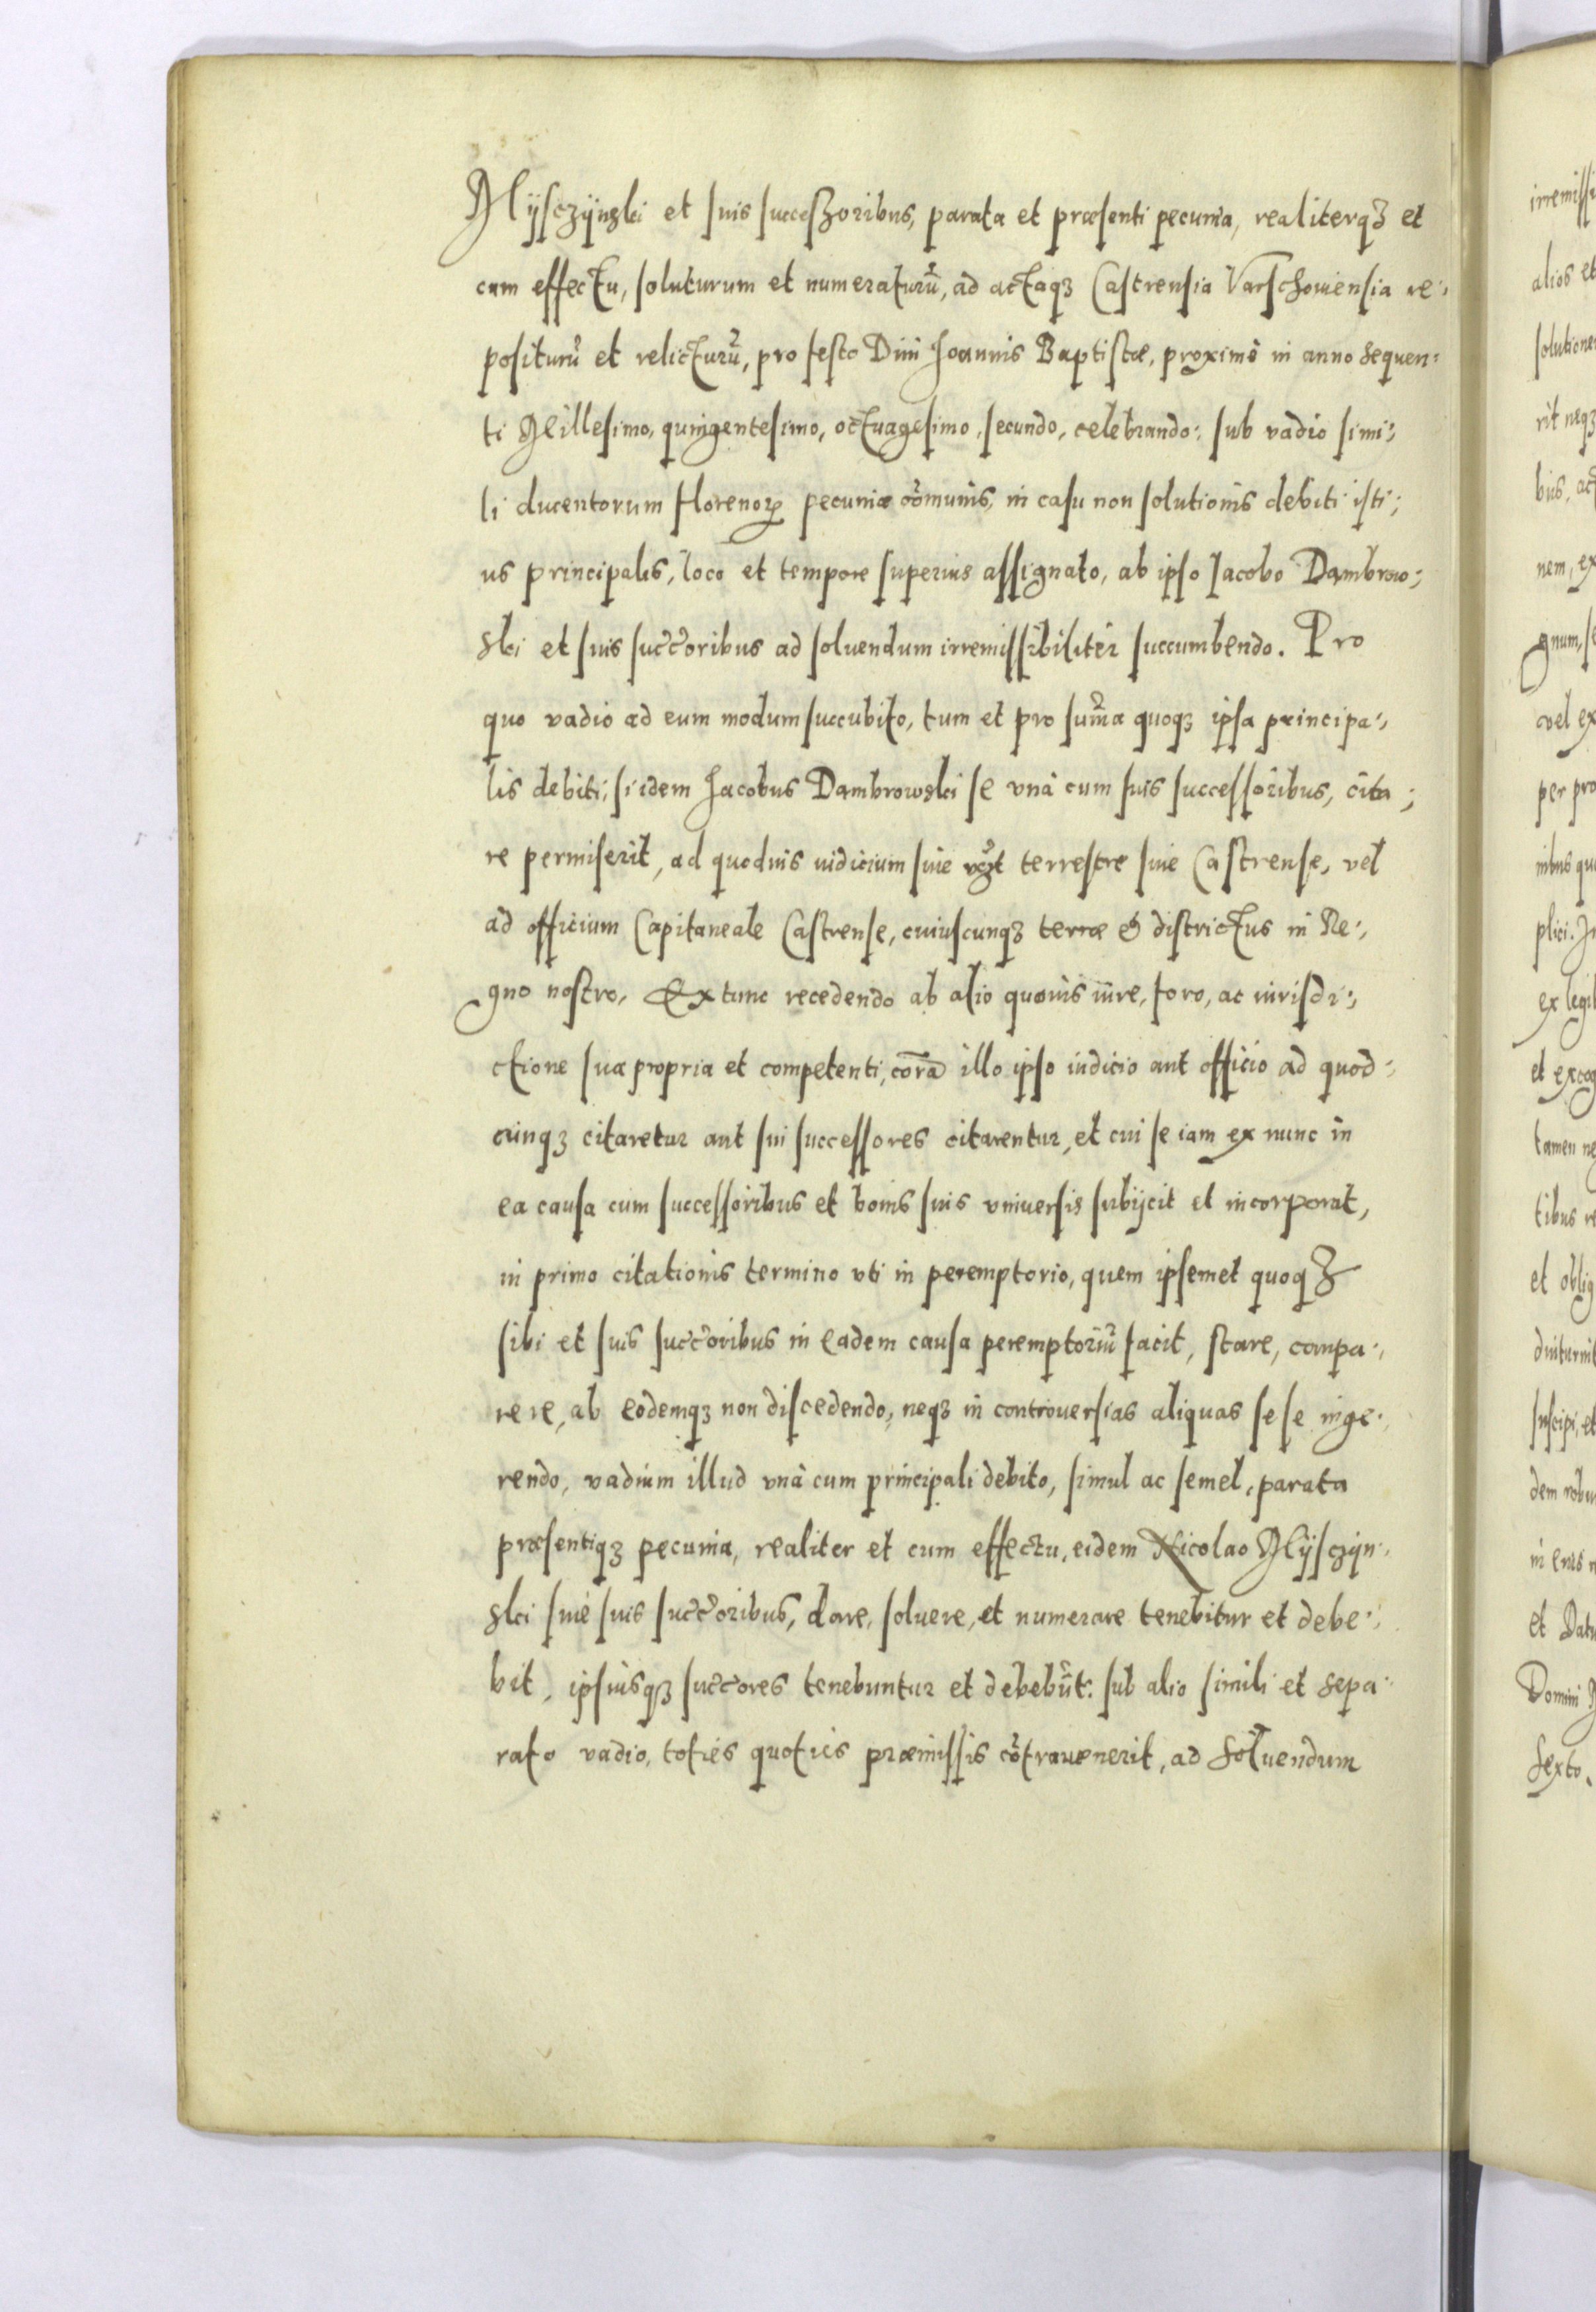 Mÿsczÿnski et suis successoribus, parata et præsenti pecunia, realiterqꝫ et
cum effectu, soluturum et numeraturũ, ad actaqꝫ Castrensia Varschouiensia re⸗
positurũ et relicturũ, pro festo Diui Joannis Baptistæ, proximè in anno sequen⸗
ti Millesimo, quingentesimo, octuagesimo, secundo, celebrando: sub vadio simi⸗
li ducentorum florenoꝝ pecuniæ cõmunis, in casu non solutionis debiti isti⸗
us principalis, loco et tempore superius assignato, ab ipso Jacobo Dambrow⸗
ski et suis succ̃oribus ad soluendum irremissibiliter succumbendo. Pro
quo vadio ad eum modum succubito, tum et pro sum̃a quoqꝫ ipsa principa⸗
lis debiti, si idem Jacobus Dambrowski se vnà cum suis successoribus, cita⸗
re permiserit, ad quoduis iudicium siue terrestre siue Castrense, vel
ad officium Capitaneale Castrense, cuiuscunqꝫ terræ & districtus in Re⸗
gno nostro, Extunc recedendo ab alio quouis iure, foro, ac iurisdi⸗
ctione sua propria et competenti, corã illo ipso iudicio aut officio ad quod⸗
cunqꝫ citaretur aut sui successores citarentur, et cui se iam ex nunc in
ea causa cum successoribus et bonis suis vniuersis subijcit et incorporat,
in primo citationis termino vti in peremptorio, quem ipsemet quoqꝫ
sibi et suis succ̃oribus in eadem causa peremptoriũ facit, stare, compa⸗
rere, ab eodemqꝫ non discedendo, neqꝫ in controuersias aliquas sese inge⸗
rendo, vadium illud vnà cum principali debito, simul ac semel, parata
præsentiqꝫ pecunia, realiter et cum effectu, eidem Nicolao Mÿsczÿn⸗
ski siue suis succ̃oribus, dare, soluere, et numerare tenebitur et debe⸗
bit, ipsiusqꝫ succ̃ores tenebuntur et debebũt: sub alio simili et sepa⸗
rato vadio, toties quoties præmissis cõtrauenerit, ad soluendum
irremissi
alios et
solutione
rit neqꝫ
bus, act
nem, ex
gnum, se
vel ex
per pro
nibus qu
plici. In
ex legib
et excog
tamen ne
tibus re
et oblig
diuturnit
suscipi, et
dem robu
in eius
et Datu
Domini
Sexto.